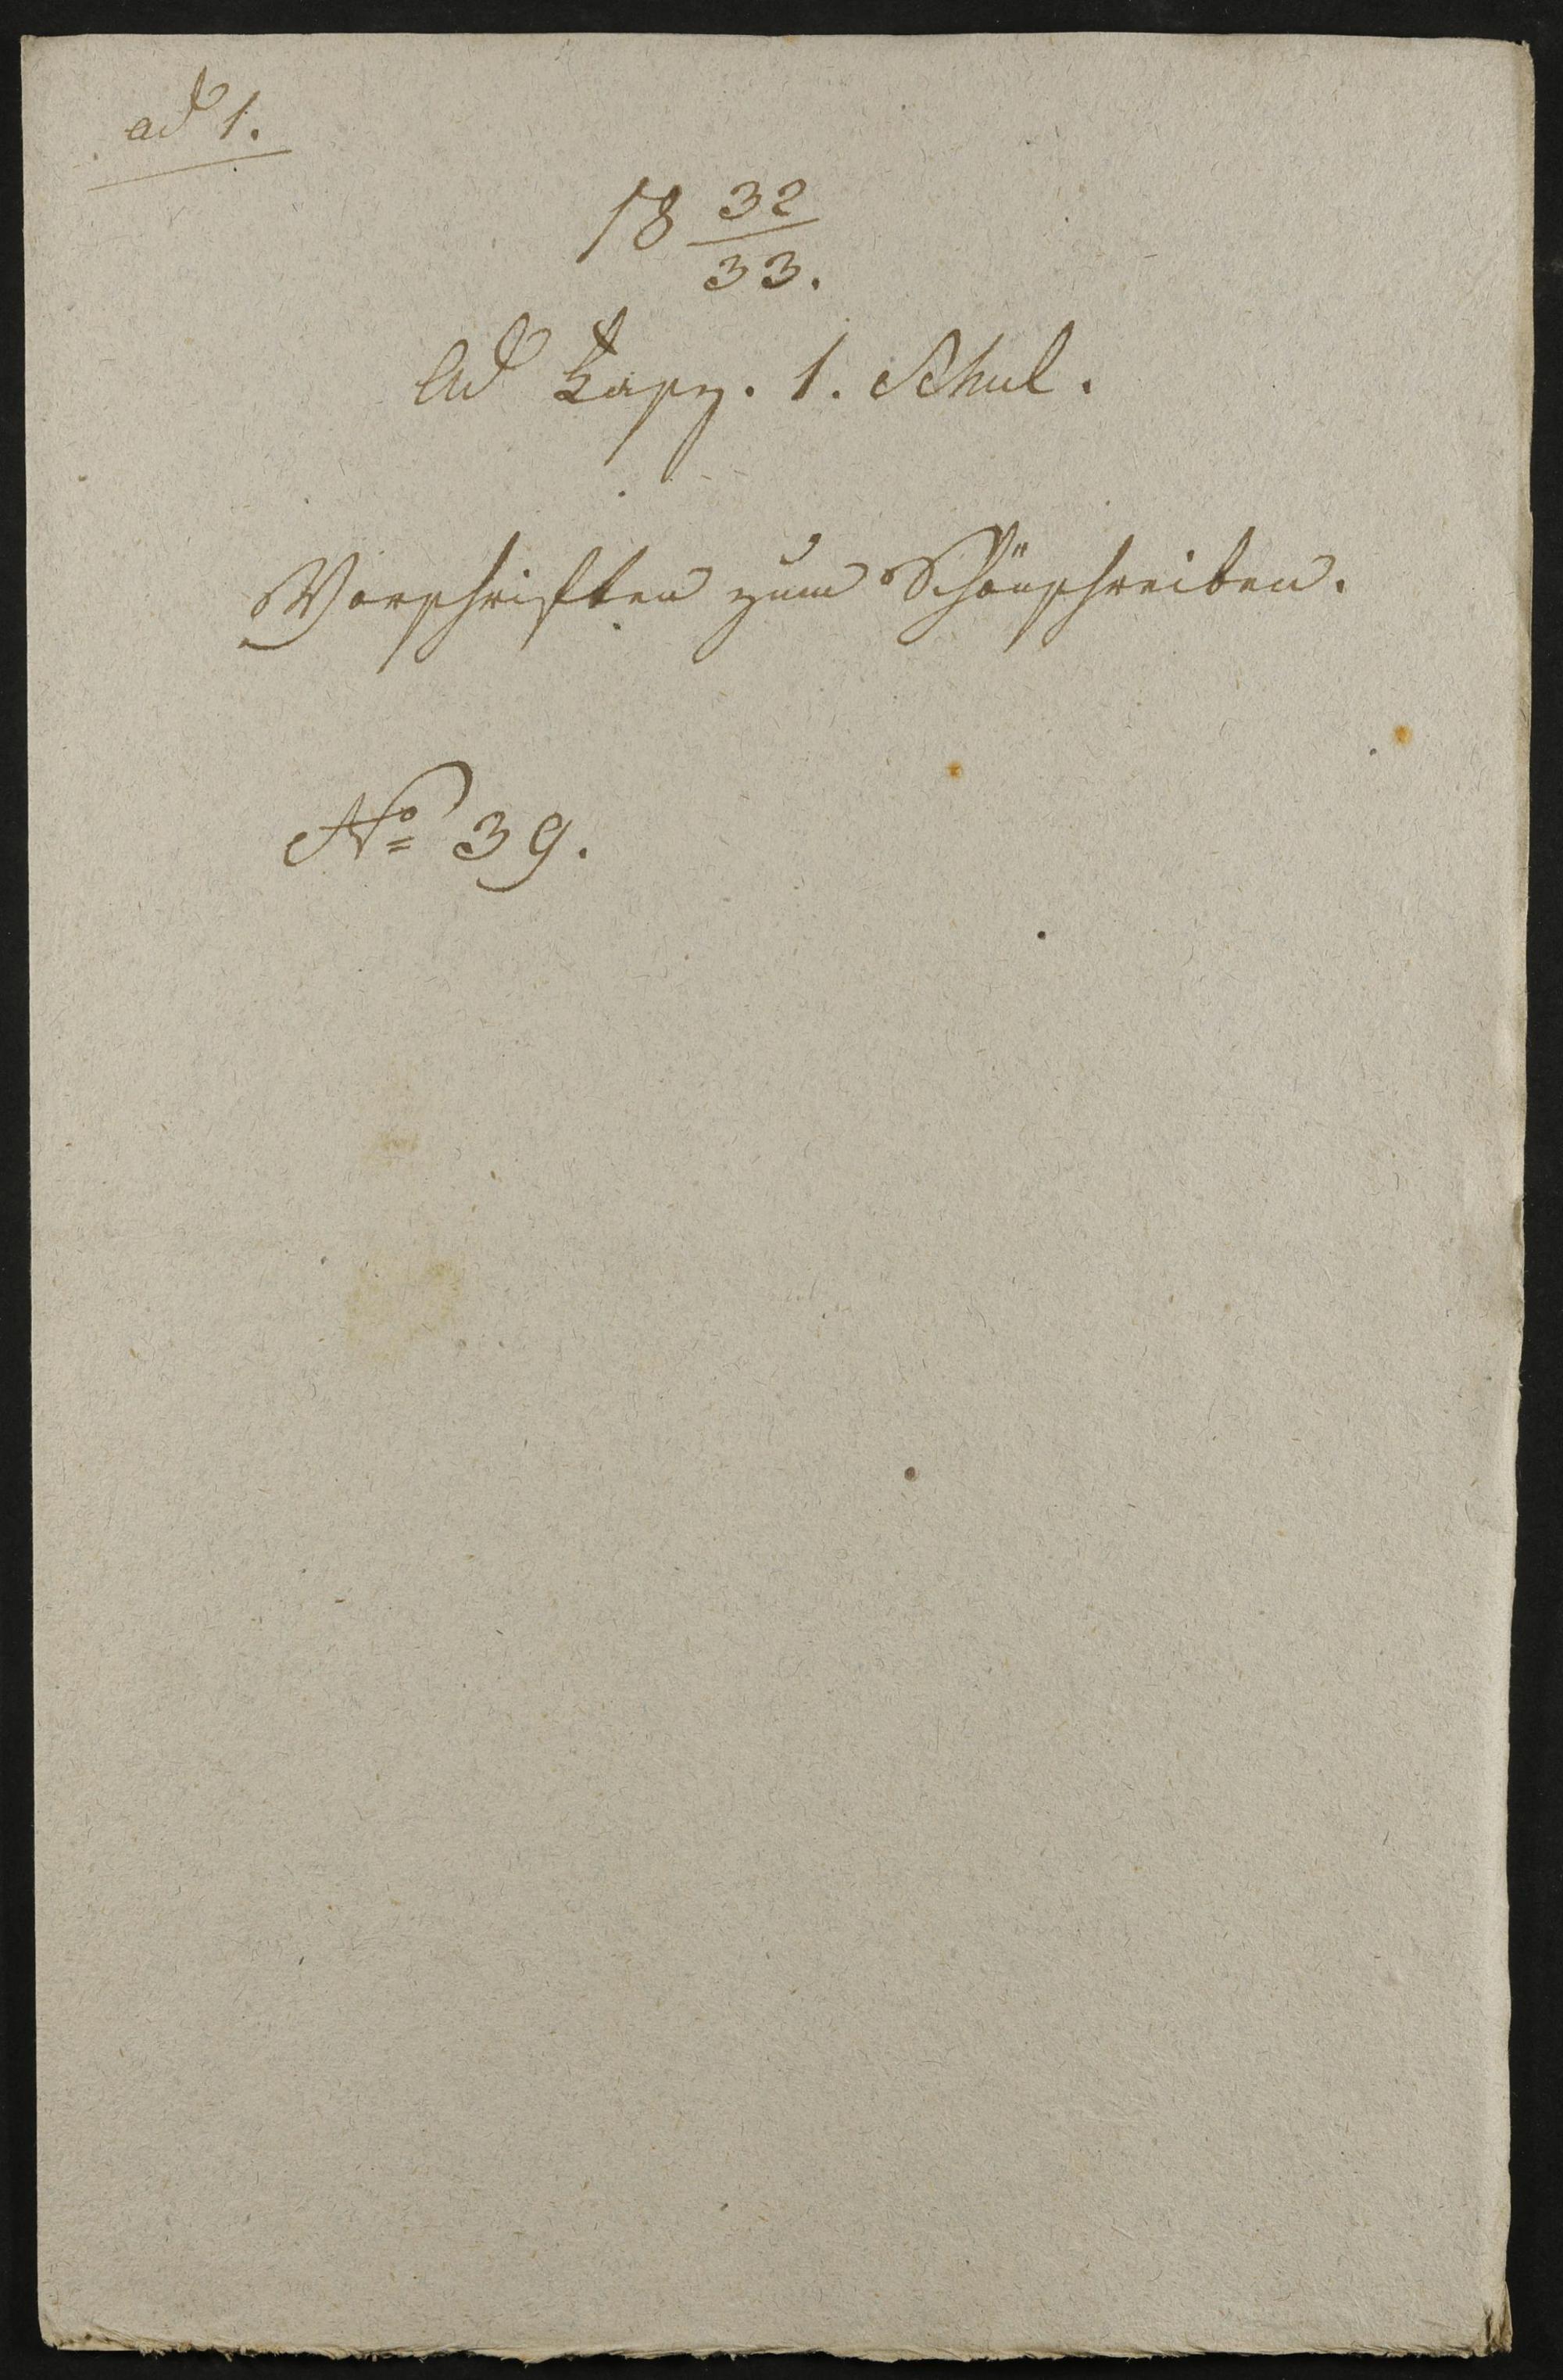 ad 1.
18 32/33.
Ad Fasz. 1. Schul.
Vorschriften zum Schönschreiben.
No 39.